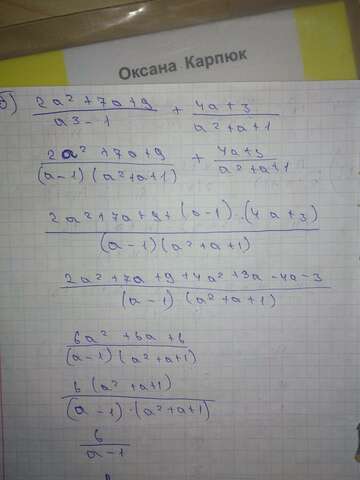 Оксана Карпюк
в) (2a² + 7a + 9)/(a3 - 1) + (4a + 3)/(a² + a + 1)
(2a² + 7a + 9)/((a-1)(a² + a + 1)) + (4a + 3)/(a² + a + 1)
(2a² + 7a + 9 + (a-1)·(4a + 3))/((a-1)(a² + a + 1))
(2a² + 7a + 9 + 4a² + 3a - 4a - 3)/((a-1)(a² + a + 1))
(6a² + 6a + 6)/((a-1)(a² + a + 1))
(6(a² + a + 1))/((a-1)·(a² + a + 1))
6/(a-1)